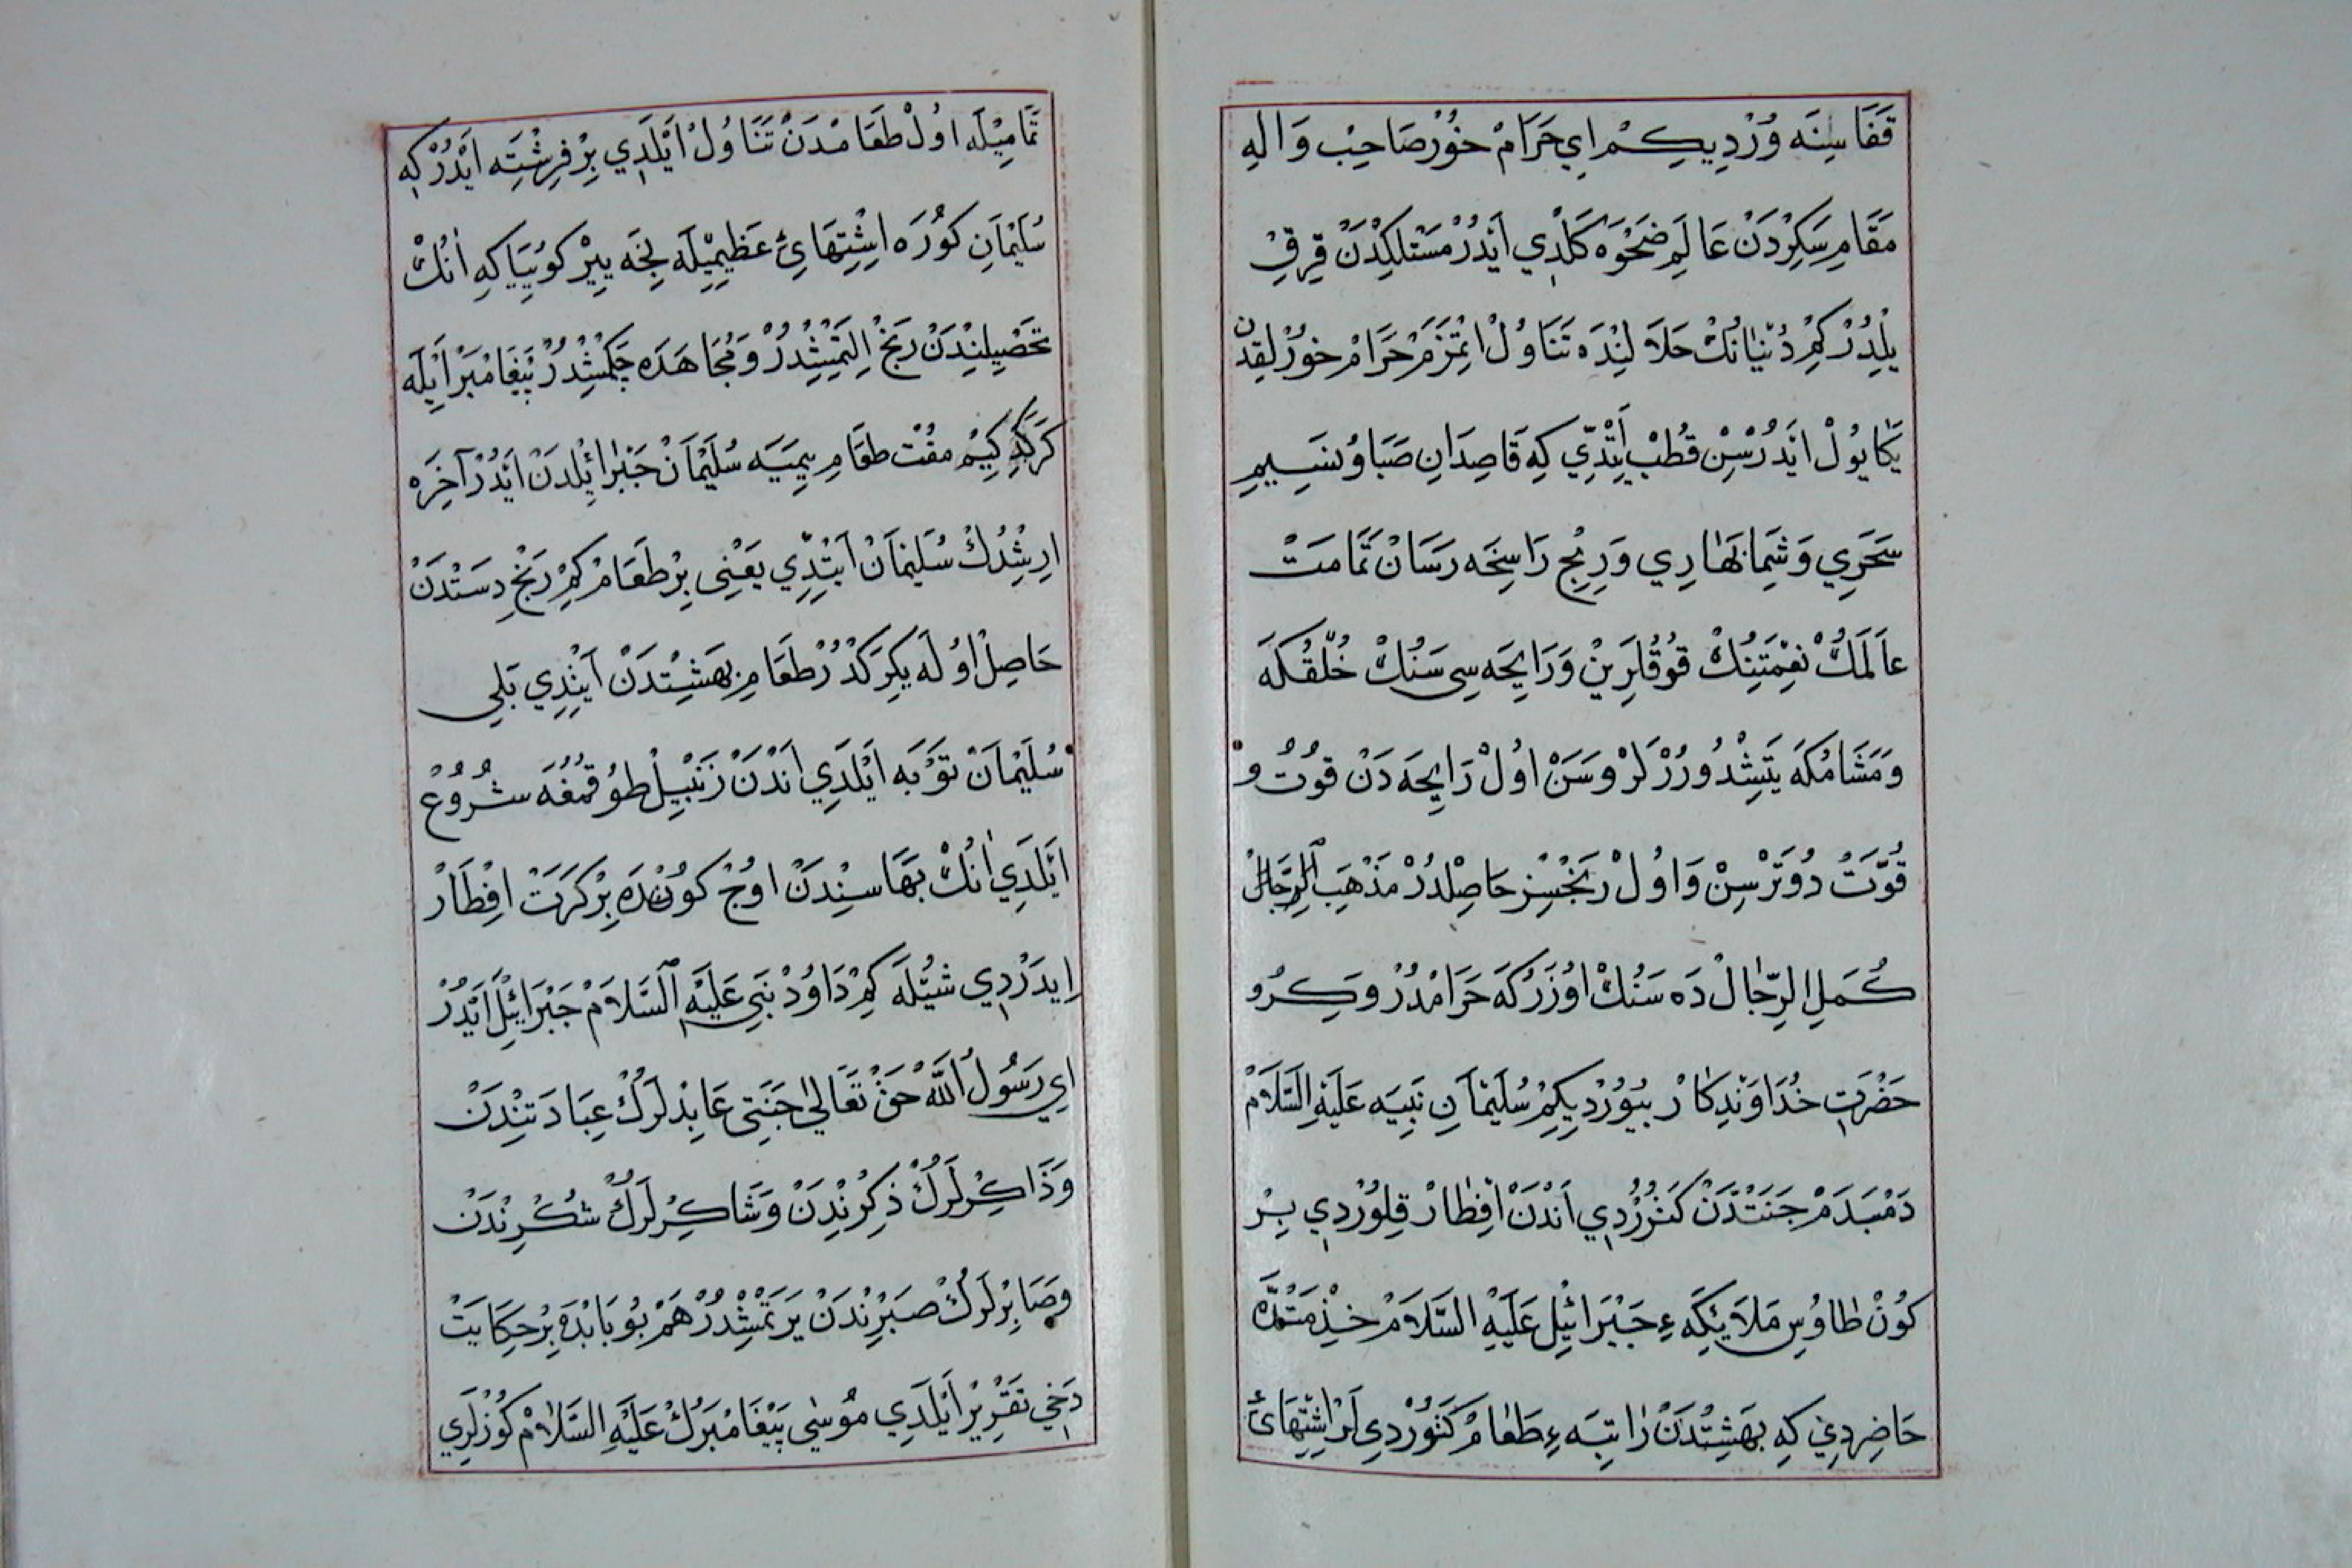 قَفَاسِنَه وُرْدِيكِمْ اِي حَرَامْ خُورْ صَاحِبْ وَالِهِ
مَقَامِ سَكِرْدَنْ عَالَمِ ضَحْوَه كَلْدِي اَيْدُرْ مَسْتَلِكِدَنْ قِرقْ
يِلْدُرْ كِمْ دُنْيَانُكْ حَلَالِنْدَه تَنَاوُلْ اِتْمَزَمْ حَرَامْ خُورْلِقِدَن
يَكَا يُولْ اَيْدُرْسِنْ قُطْبْ اَيِتْدِّي كِه قَاصِدَانِ صَبَا وُ نَسِيمِ
سَحَرِي وَشَمِ بَهَارِي وَرِيحِ رَاسِخَه رَسَانْ تَمَامَتْ
عَالَمَكْ نِعْمَتِنُكْ قُوقُلَرِينْ وَرَايِحَه سِى سَنُكْ خُلْقُكَه
وَمَشَامُكَه يَتِشْدُورُرْلَرْ وسَنْ اُولْ رَايِحَه دَنْ قُوتُ و
قُوَّتْ دُوتَرْسِنْ وَاُولْ رَنْجْسِزْ حَاصِلْدُرْ مَذْهَبِ الرِّجَالْ
كُمَلِ الرِّجَالْ دَه سَنُكْ اُوزَرُكَه حَرَامْدُرْ ومَكِرُو
حَضْرَتِ خُدَاوَنْدِكَارْ بيُورْدِيكِمْ سُلَيْمَانِ نَبِيَه عَلَيْهِ السَّلَامْ
دَمْبَدَمْ جَنَتْدَنْ كَتُورُرْدِي اَنْدَنْ اِفْطَارْ قِلُورْدِي بِرْ
كُونْ طَاوُسِ مَلَايِكَه ءِ جَبْرَائِيلْ عَلَيْهِ السَّلَامْ خِذْمَتْدَه
حَاضِردِي كِه بِهَشِتْدَنْ رَاتِبَه ءِ طَعَامْ كَتُورْدِيلَرْ اِشْتِهَائِ
تَمَامِيلَه اُولْ طَعَامْدَنْ تَنَاوُلْ اَيْلَدِي بِرْ فِرِشْتَه اَيْدُرْكِه
سُلَيْمَانِ كُورَه اِشْتِهَائِ عَظِيمِيلَه نِجَه يِيرْ كُويِيَاكِه اَنُكْ
تَحْصِيلِنْدَنْ رَنْجْ اِلَتْمِشْدُرْ وَمُجَاهَدَه چَكْمِشْدُرْ پَيْغَامْبَرْ اَيْلَه
كَرَكْدِكِيمْ مفْتْ طعَامِ يِيمِيَه سُلَيْمَانْ جَبْرَائِلْدَنْ اَيْدُرْ آخِرَه
اِرِشْدُكْ سُلَيْمَانْ اَيِتْدِّي يَعْنِى بِرْ طَعَامْ كِمْ رَنْجِ دِسَتْدَنْ
حَاصِلْ اُولَه يِكِرَكْدُرْ طَعَامِ بِهَشِتْدَنْ اَيِتْدِي بَلِي
سُلَيْمَانْ تَوْبَه اَيْلَدِي اَنْدَنْ زَنْبِيلْ طُوقُمَغَه شُرُوعْ
اَيْلَدِي اَنُكْ بَهَاسِنْدَنْ اُوجْ كُونْدَه بِرْكَرَتْ اِفْطَارْ
اِيدَرْدِي شُيْلَه كِمْ دَاوُدْ نَبِي عَلَيْهِ السَّلَامْ جَبْرَائِلْ اَيْدُرْ
اِي رَسُولُ اللّٰه حَقْ تَعَالَى جَنَتِى عَابِدْلَرُكْ عِبَادَتِنْدَنْ
وَذَاكِرْلَرُكْ ذِكِرِنْدِنْ وَشَاكِرْلَرُكْ شُكْرِنْدَنْ
وصَابِرْلَرُكْ صَبِرِنْدَنْ يَرَتْمِشْدُرْ هَمْ بُو بَابْدَه بِرْ حِكَايَتْ
دَخِي تَقْرِيرْ اَيْلَدِي مُوسٰى پَيْغَامْبَرُكْ عَلَيْهِ السَّلَامْ كُوزْلَرِي